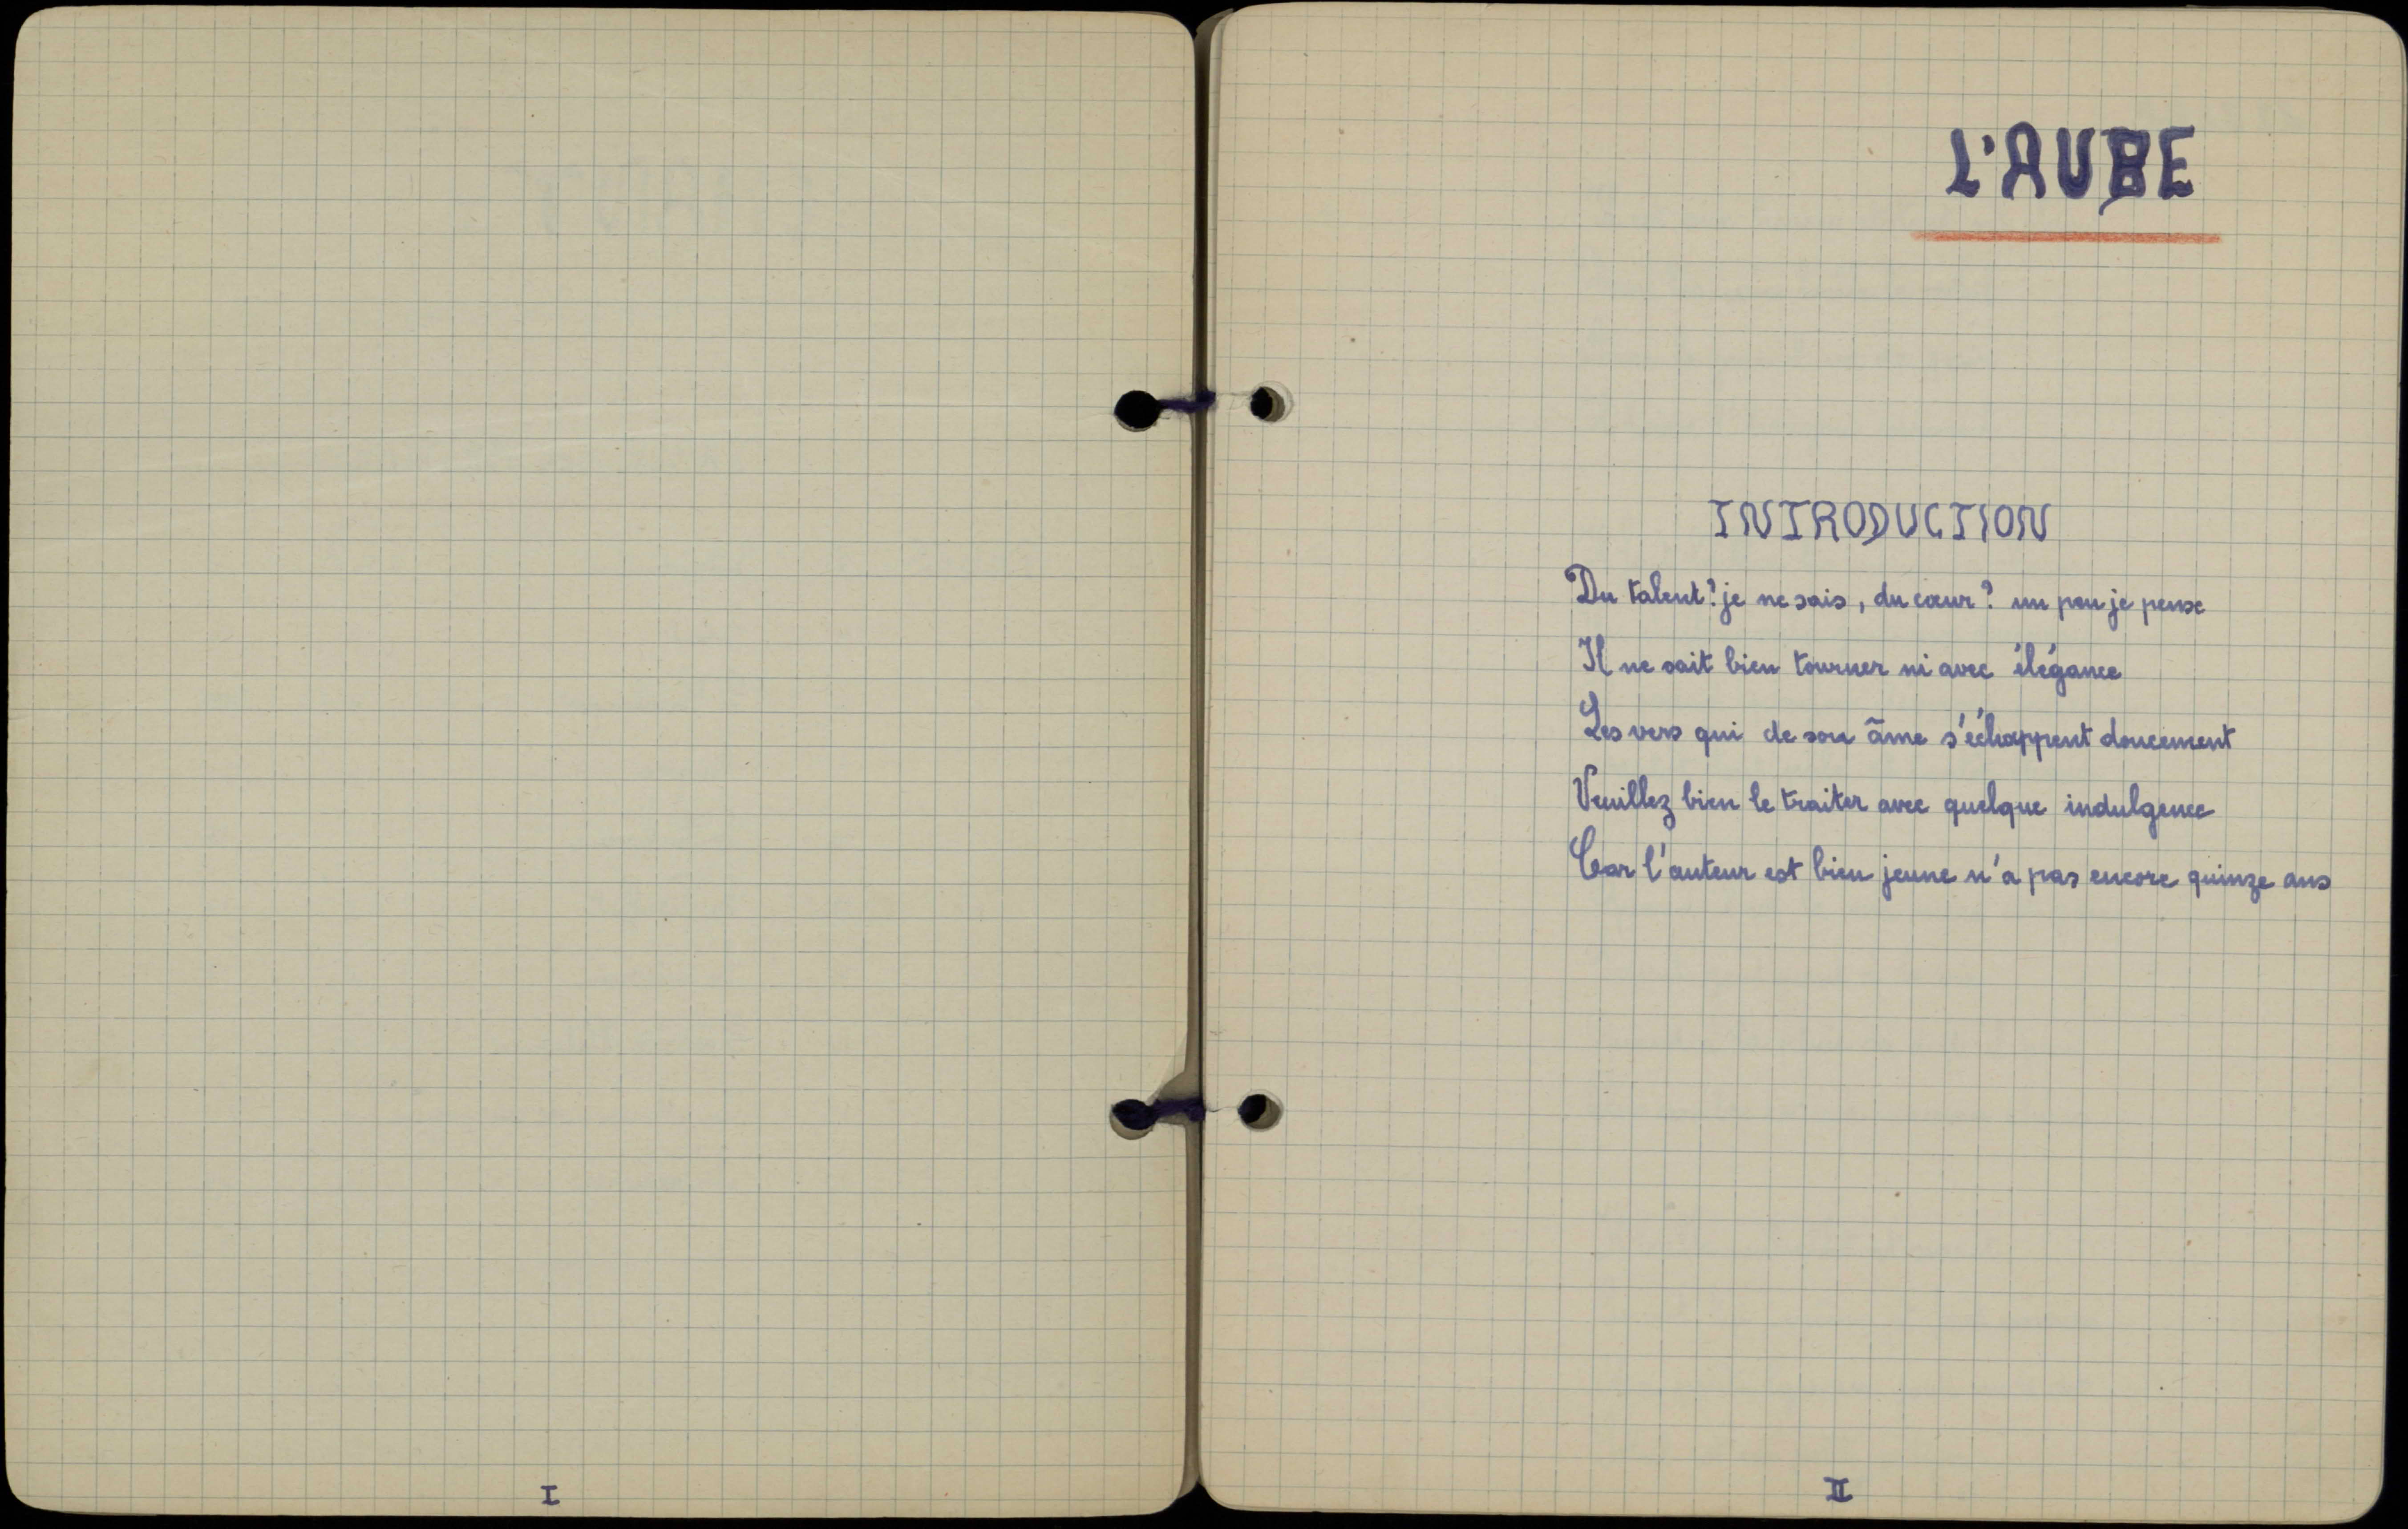 L'AUBE
INTRODUCTION
Du talent? je ne sais, du cœur? un peu je pense
Il ne sait bien tourner ni avec élégance
Les vers qui de son âme s'échappent doucement
Veuillez bien le traiter avec quelque indulgence
Car l'auteur est bien jeune n'a pas encore quinze ans
I
II